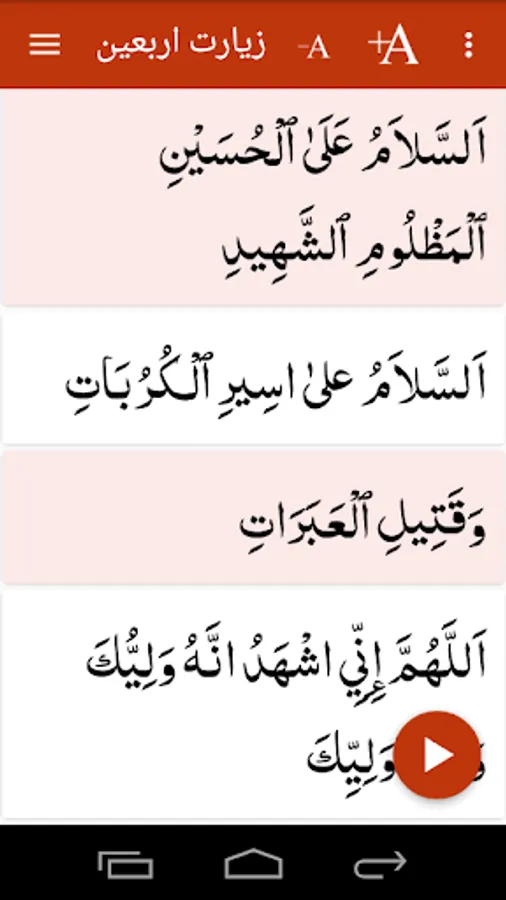 زیارت اربعین -A +A
اَلسَّلاَمُ عَلَىٰ ٱلْحُسَيْنِ
ٱلْمَظْلُومِ ٱلشَّهِيدِ
اَلسَّلاَمُ علىٰ اسِيرِ ٱلْكُرُبَاتِ
وَقَتِيلِ ٱلْعَبَرَاتِ
اَللَّهُمَّ إِنِّي اشْهَدُ انَّهُ وَلِيُّكَ
وَلِيِّكَ